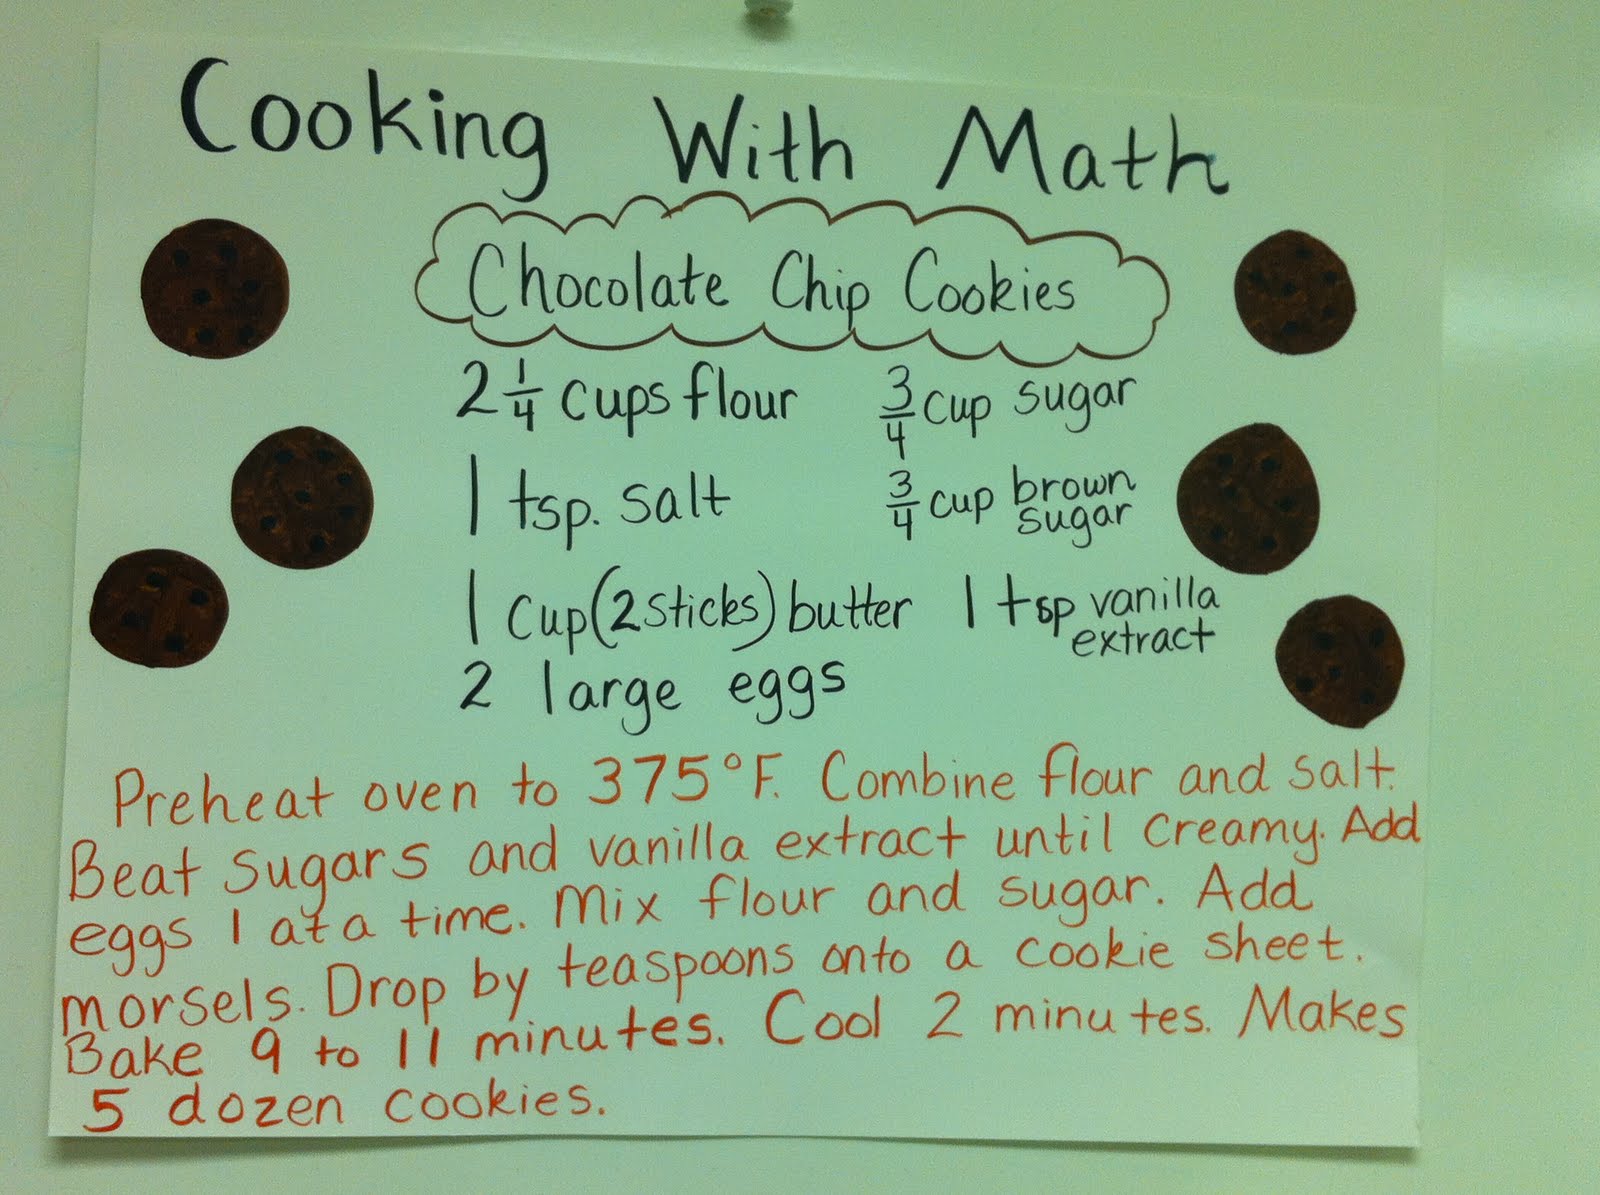 Cooking With Math
Chocolate Chip Cookies
2 1/4 cups flour 3/4 cup sugar
1 tsp. salt 3/4 cup brown sugar
1 cup (2 sticks) butter 1 tsp vanilla extract
2 large eggs
Preheat oven to 375°F. Combine flour and salt.
Beat sugars and vanilla extract until creamy. Add
eggs 1 at a time. Mix flour and sugar. Add
morsels. Drop by teaspoons onto a cookie sheet.
Bake 9 to 11 minutes. Cool 2 minutes. Makes
5 dozen cookies.